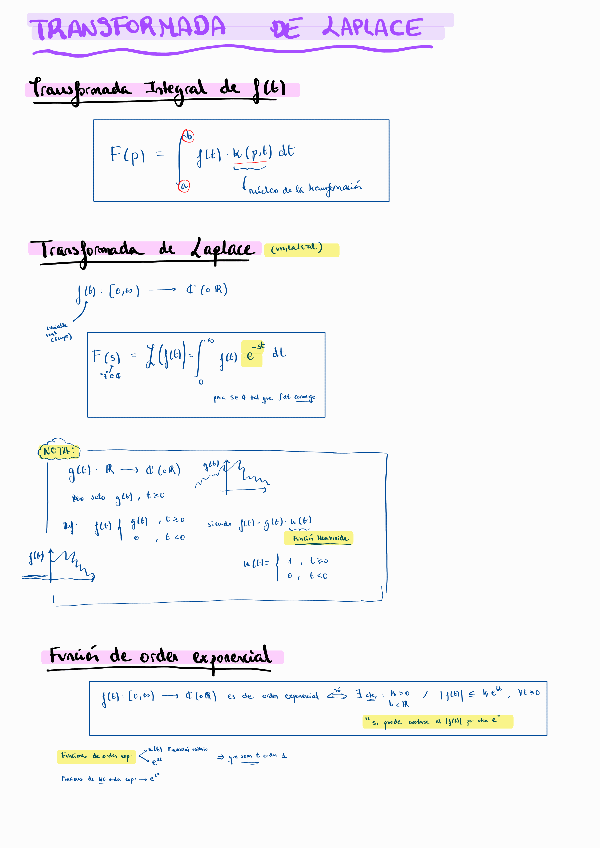 TRANSFORMADA DE LAPLACE
Transformada Integral de f(t)
F(p) = ∫ₐᵇ f(t) · k(p,t) dt
núcleo de la transformación
Transformada de Laplace (unilateral)
f(t): [0,∞) → ℂ (o ℝ)
variable real
F(s) = ℒ(f(t)) = ∫₀^∞ f(t) e^{-st} dt
para s∈ℂ tal que converge
NOTA:
g(t): ℝ → ℂ (o ℝ) g(t)
solo g(t), t≥0
Def: f(t) { g(t), t≥0 siendo f(t) = g(t) · u(t)
0, t<0
Función Heaviside
f(t) u(t) = { 1, t≥0
0, t<0
Función de orden exponencial
f(t): [0,∞) → ℂ (o ℝ) es de orden exponencial ⟺ ∃ M>0 / |f(t)| ≤ , ∀t≥0
"se puede acotar el |f(t)| por una e"
Funciones de orden exp
Funciones de no orden exp →